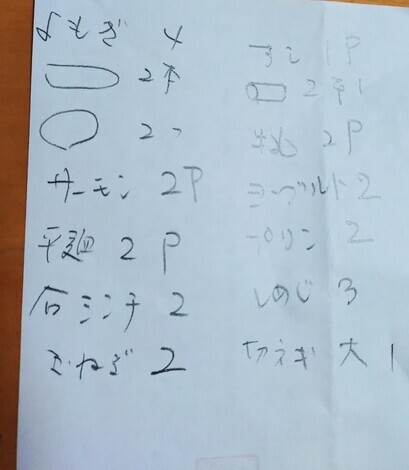 よもぎ 4
2本
2つ
サーモン 2P
平麺 2P
石ミンチ 2
玉ねぎ 2
すし 1P
2
2P
ヨーグルト 2
プリン 2
しめじ 3
切ネギ 大 1